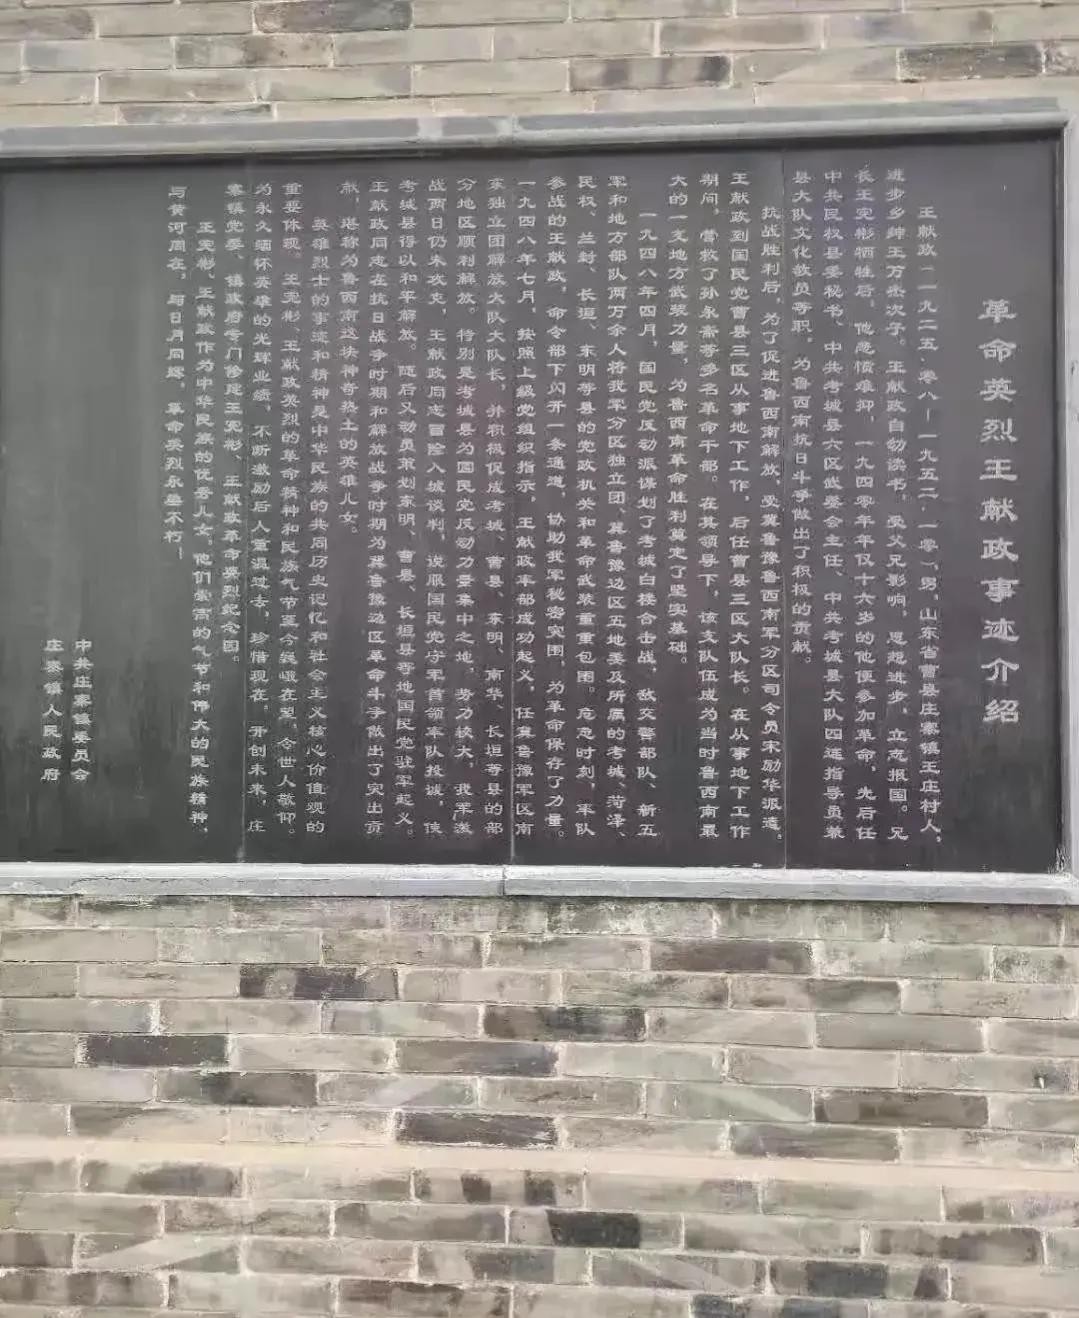 革命英烈王献政事迹介绍
王献政（一九二五·零八—一九五二·一零），男，山东省曹县庄寨镇王庄村人，
进步乡绅王万杰次子。王献政自幼读书，受父兄影响，思想进步，立志报国。兄
长王宪彬牺牲后，他悲愤难抑，一九四零年年仅十六岁的他便参加革命，先后任
中共民权县委秘书、中共考城县六区武委会主任、中共考城县大队四连指导员兼
县大队文化教员等职，为鲁西南抗日斗争做出了积极的贡献。
抗战胜利后，为了促进鲁西南解放，受冀鲁豫鲁西南军分区司令员宋励华派遣，
王献政到国民党曹县三区从事地下工作，后任曹县三区大队长。在从事地下工作
期间，营救了孙永斋等多名革命干部。在其领导下，该支队伍成为当时鲁西南最
大的一支地方武装力量，为鲁西南革命胜利奠定了坚实基础。
一九四八年四月，国民党反动派谋划了考城白楼合击战，敌交警部队、新五
军和地方部队两万余人将我军分区独立团、冀鲁豫边区五地委及所属的考城、菏泽、
民权、兰封、长垣、东明等县的党政机关和革命武装重重包围。危急时刻，率队
参战的王献政，命令部下闪开一条通道，协助我军秘密突围，为革命保存了力量。
一九四八年七月，按照上级党组织指示，王献政率部成功起义，任冀鲁豫军区南
东独立团解放大队大队长，并积极促成考城、曹县、东明、南华、长垣等县的部
分地区顺利解放。特别是考城县为国民党反动力量集中之地，势力较大，我军激
战两日仍未攻克，王献政同志冒险入城谈判，说服国民党守军首领率队投诚，使
考城县得以和平解放。随后又动员策划东明、曹县、长垣县等地国民党驻军起义。
王献政同志在抗日战争时期和解放战争时期为冀鲁豫边区革命斗争做出了突出贡
献，堪称为鲁西南这块神奇热土的英雄儿女。
英雄烈士的事迹和精神是中华民族的共同历史记忆和社会主义核心价值观的
重要体现。王宪彬、王献政英烈的革命精神和民族气节至今巍峨在望，令世人敬仰。
为永久缅怀英雄的光辉业绩，不断激励后人重温过去，珍惜现在，开创未来，庄
寨镇党委、镇政府专门修建王宪彬、王献政革命英烈纪念园。
王宪彬、王献政作为中华民族的优秀儿女，他们崇高的气节和伟大的民族精神，
与黄河同在，与日月同辉，革命英烈永垂不朽！
中共庄寨镇委员会
庄寨镇人民政府